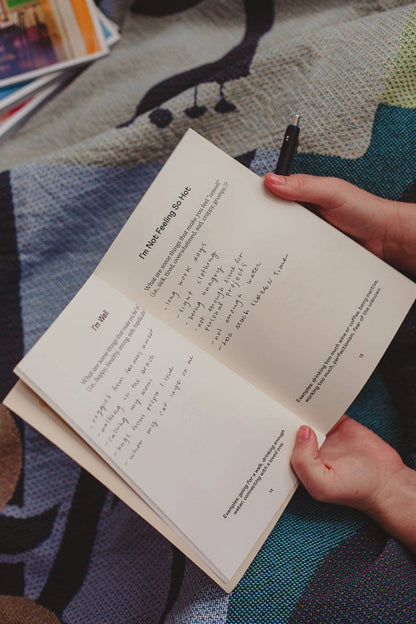 I'm Well
What are some things that make you fe
(i.e., happy, healthy, strong, safe, hopeful
- veggies from farmers market
- walking in the bush
- calling my mom
- hugs from people I love
- when my cat lays on me
Examples: going for a walk, drinking enough
water, connecting with a loved one.
14
I'm Not Feeling So Hot
What are some things that make you feel "unwell"
(i.e., sick, tired, overwhelmed, sad, crappy, grumpy)?
- long work days
- tight clothing
- being hungry
- not enough time for
personal projects
- not enough water
- too much screen time
Examples: drinking too much wine or coffee, being inactive,
working too much, perfectionism, fear of the unknown.
15